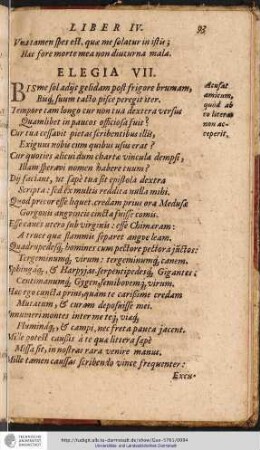 LIBER IV. 93
Vna tamen spes est, quæ me solatur in istis;
Hæc fore morte mea non diuturna mala.
ELEGIA VII.
BIS me sol adijt gelidam post frigore brumam,
Bisq́; suum tacto pisce peregit iter.
Tempore tam longo cur non tua dextera versus
Quamlibet in paucos officiosa fuit?
Cur tua cessavit pietas scribentibus illis,
Exiguus nobis cum quibus usus erat?
Cur quoties alicui dum chartæ vincula dempsi,
Illam speravi nomen habere tuum?
Dij faciant, ut sæpè tua sit epistola dextra
Scripta: sed ex multis reddita nulla mihi.
Quod precor esse liquet. credam prius ora Medusæ
Gorgonis anguineis cincta fuisse comis.
Esse canes utero sub virginis: esse Chimæram:
A truce quæ flammis separet angue leam.
Quadrupedesq́; homines cum pectore pectora iũctos:
Tergeminumq́; virum: tergeminumq́; canem.
Sphingaq́;, & Harpyjas, serpentipedesq́; Gigantes:
Centimanumq́; Gygen, semibovemq́; virum.
Hæc ego cuncta prius, quàm te carissime credam
Mutatum, & curam deposuisse mei.
Innumeri montes inter me teq́;, viæq́;
Fluminaq́;, & campi, nec freta pauca jacent.
Mille potest causis à te quæ littera sæpè
Missa sit, in nostras rara venire manus.
Mille tamen caussas scribendo vince frequenter:
Excu-
Accusat
amicum,
quòd ab
eo literas
non ac-
ceperit,